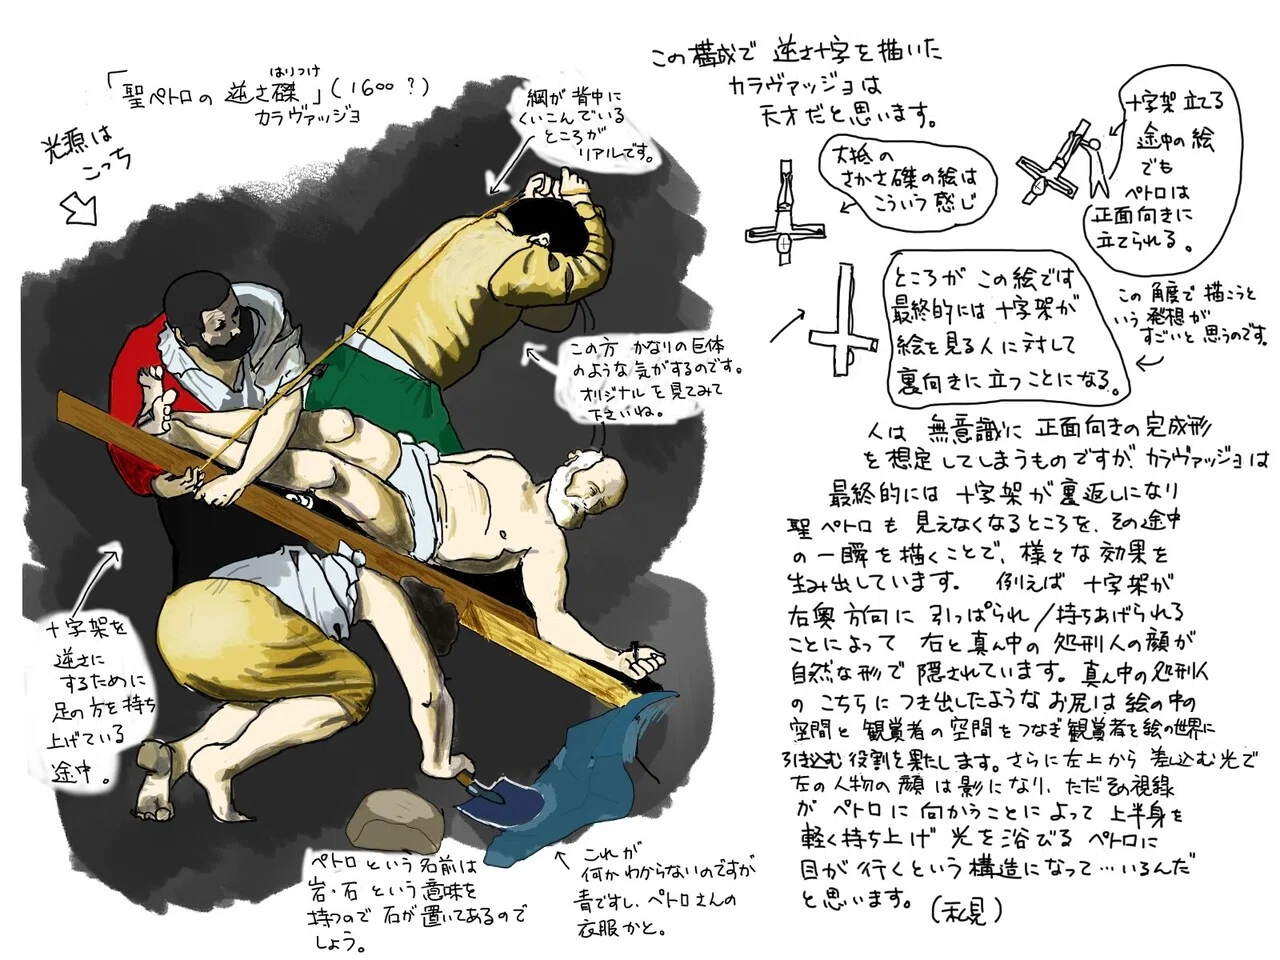 「聖ペトロの逆さ磔」(1600?)
はりつけ
カラヴァッジョ
光源は
こっち
綱が背中に
くいこんでいる
ところが
リアルです。
この構成で逆さ十字を描いた
カラヴァッジョは
天才だと思います。
大抵の
さかさ磔の絵は
こういう感じ
十字架立てる
途中の絵
でも
ペトロは
正面向きに
立てられる。
ところがこの絵では
最終的には十字架が
絵を見る人に対して
裏向きに立つことになる。
この角度で描こうと
いう発想が
すごいと思うのです。
この方かなりの巨体
のような気がするのです。
オリジナルを見てみて
下さいね。
人は無意識に正面向きの完成形
を想定してしまうものですが、カラヴァッジョは
最終的には十字架が裏返しになり
聖ペトロも見えなくなるところを、その途中
の一瞬を描くことで、様々な効果を
生み出しています。例えば十字架が
右奥方向に引っぱられ/持ちあげられる
ことによって右と真ん中の処刑人の顔が
自然な形で隠されています。真ん中の処刑人
のこちらにつき出したようなお尻は絵の中の
空間と観賞者の空間をつなぎ観賞者を絵の世界に
引き込む役割を果たします。さらに左上から差し込む光で
左の人物の顔は影になり、ただその視線
がペトロに向かうことによって上半身を
軽く持ち上げ光を浴びるペトロに
目が行くという構造になって…いるんだ
と思います。(私見)
十字架を
逆さに
するために
足の方を持ち
上げている
途中。
ペトロという名前は
岩・石という意味を
持つので石が置いてあるので
しょう。
これが
何かわからないのですが
青ですし、ペトロさんの
衣服かと。